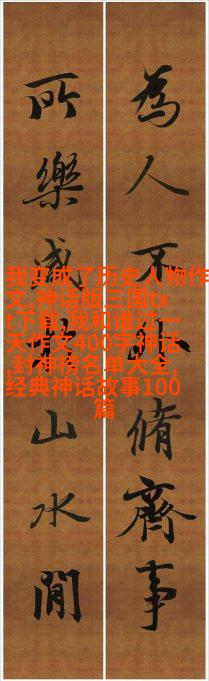 為人不外脩齊事
所樂咸在山水間
我变成了历史人物作
文,神话版三国tx
t下载,我和谁过一
天作文400字神话
,封神傍名单大全,
经典神话故事100
篇